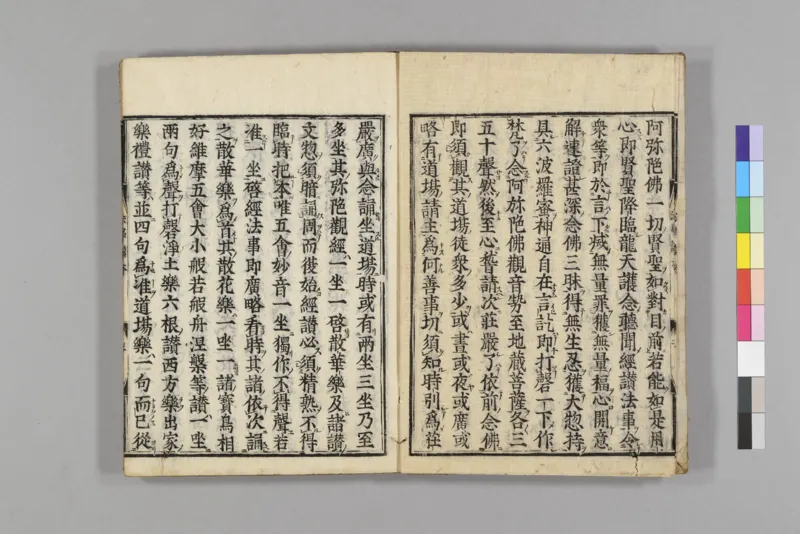 阿弥陀佛一切賢聖如對目前若能如是用
心即賢聖降臨龍天護念聽聞經讃法事令
衆等即於言下滅無量罪獲無量福心開意
解速證甚深念佛三昧得無生忍獲大惣持
具六波羅蜜神通自在言訖即打磬一下作
梵了念阿弥陀佛觀音勢至地藏菩薩各三
五十聲然後至心誓請次莊嚴了依前念佛
即須觀其道場徒衆多少或晝或夜或廣或
略有道場請主爲何善事切須知時別爲
嚴廣與念誦坐道場時或有兩坐三坐乃至
多坐其弥陀觀經一坐一啓散華樂及諸讃
文惣須暗誦周而復始經讃必須精熟不得
臨時把本唯五會妙音一坐獨作不得聲若
准一坐啓經法事即廣略看時其諸依次誦
之散華樂爲首其散花樂一坐一諸寶鳥相
好維摩五會大小般若般舟涅槃等讃一坐
兩句爲聲打磬淨土樂六根讃西方樂出家
樂禮讃等並四句爲准道場樂一句而已從